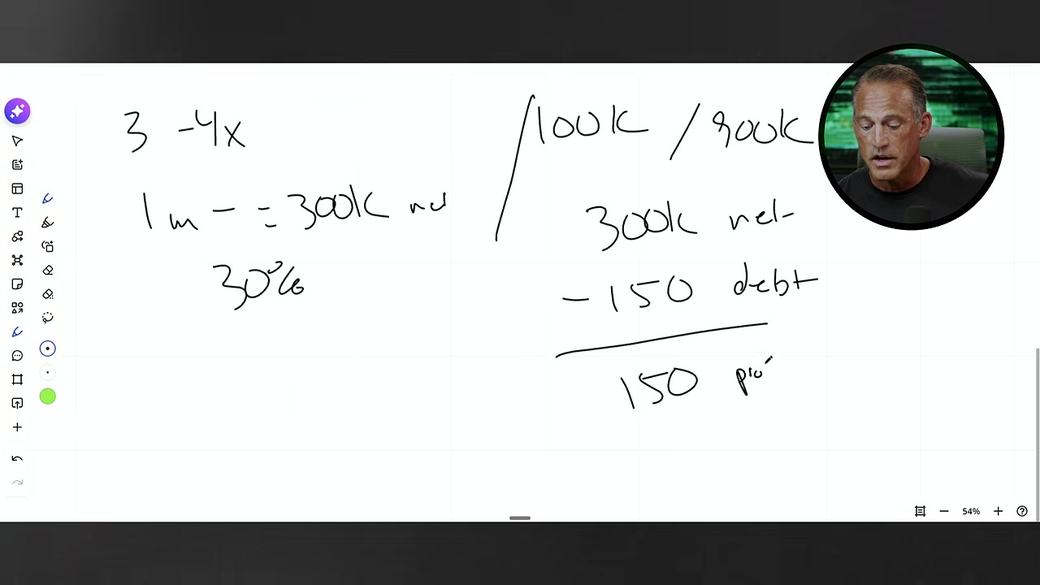 3 -4x
1m - = 300K net
30%
/100K / 900K
300K net
- 150 debt
150
54%